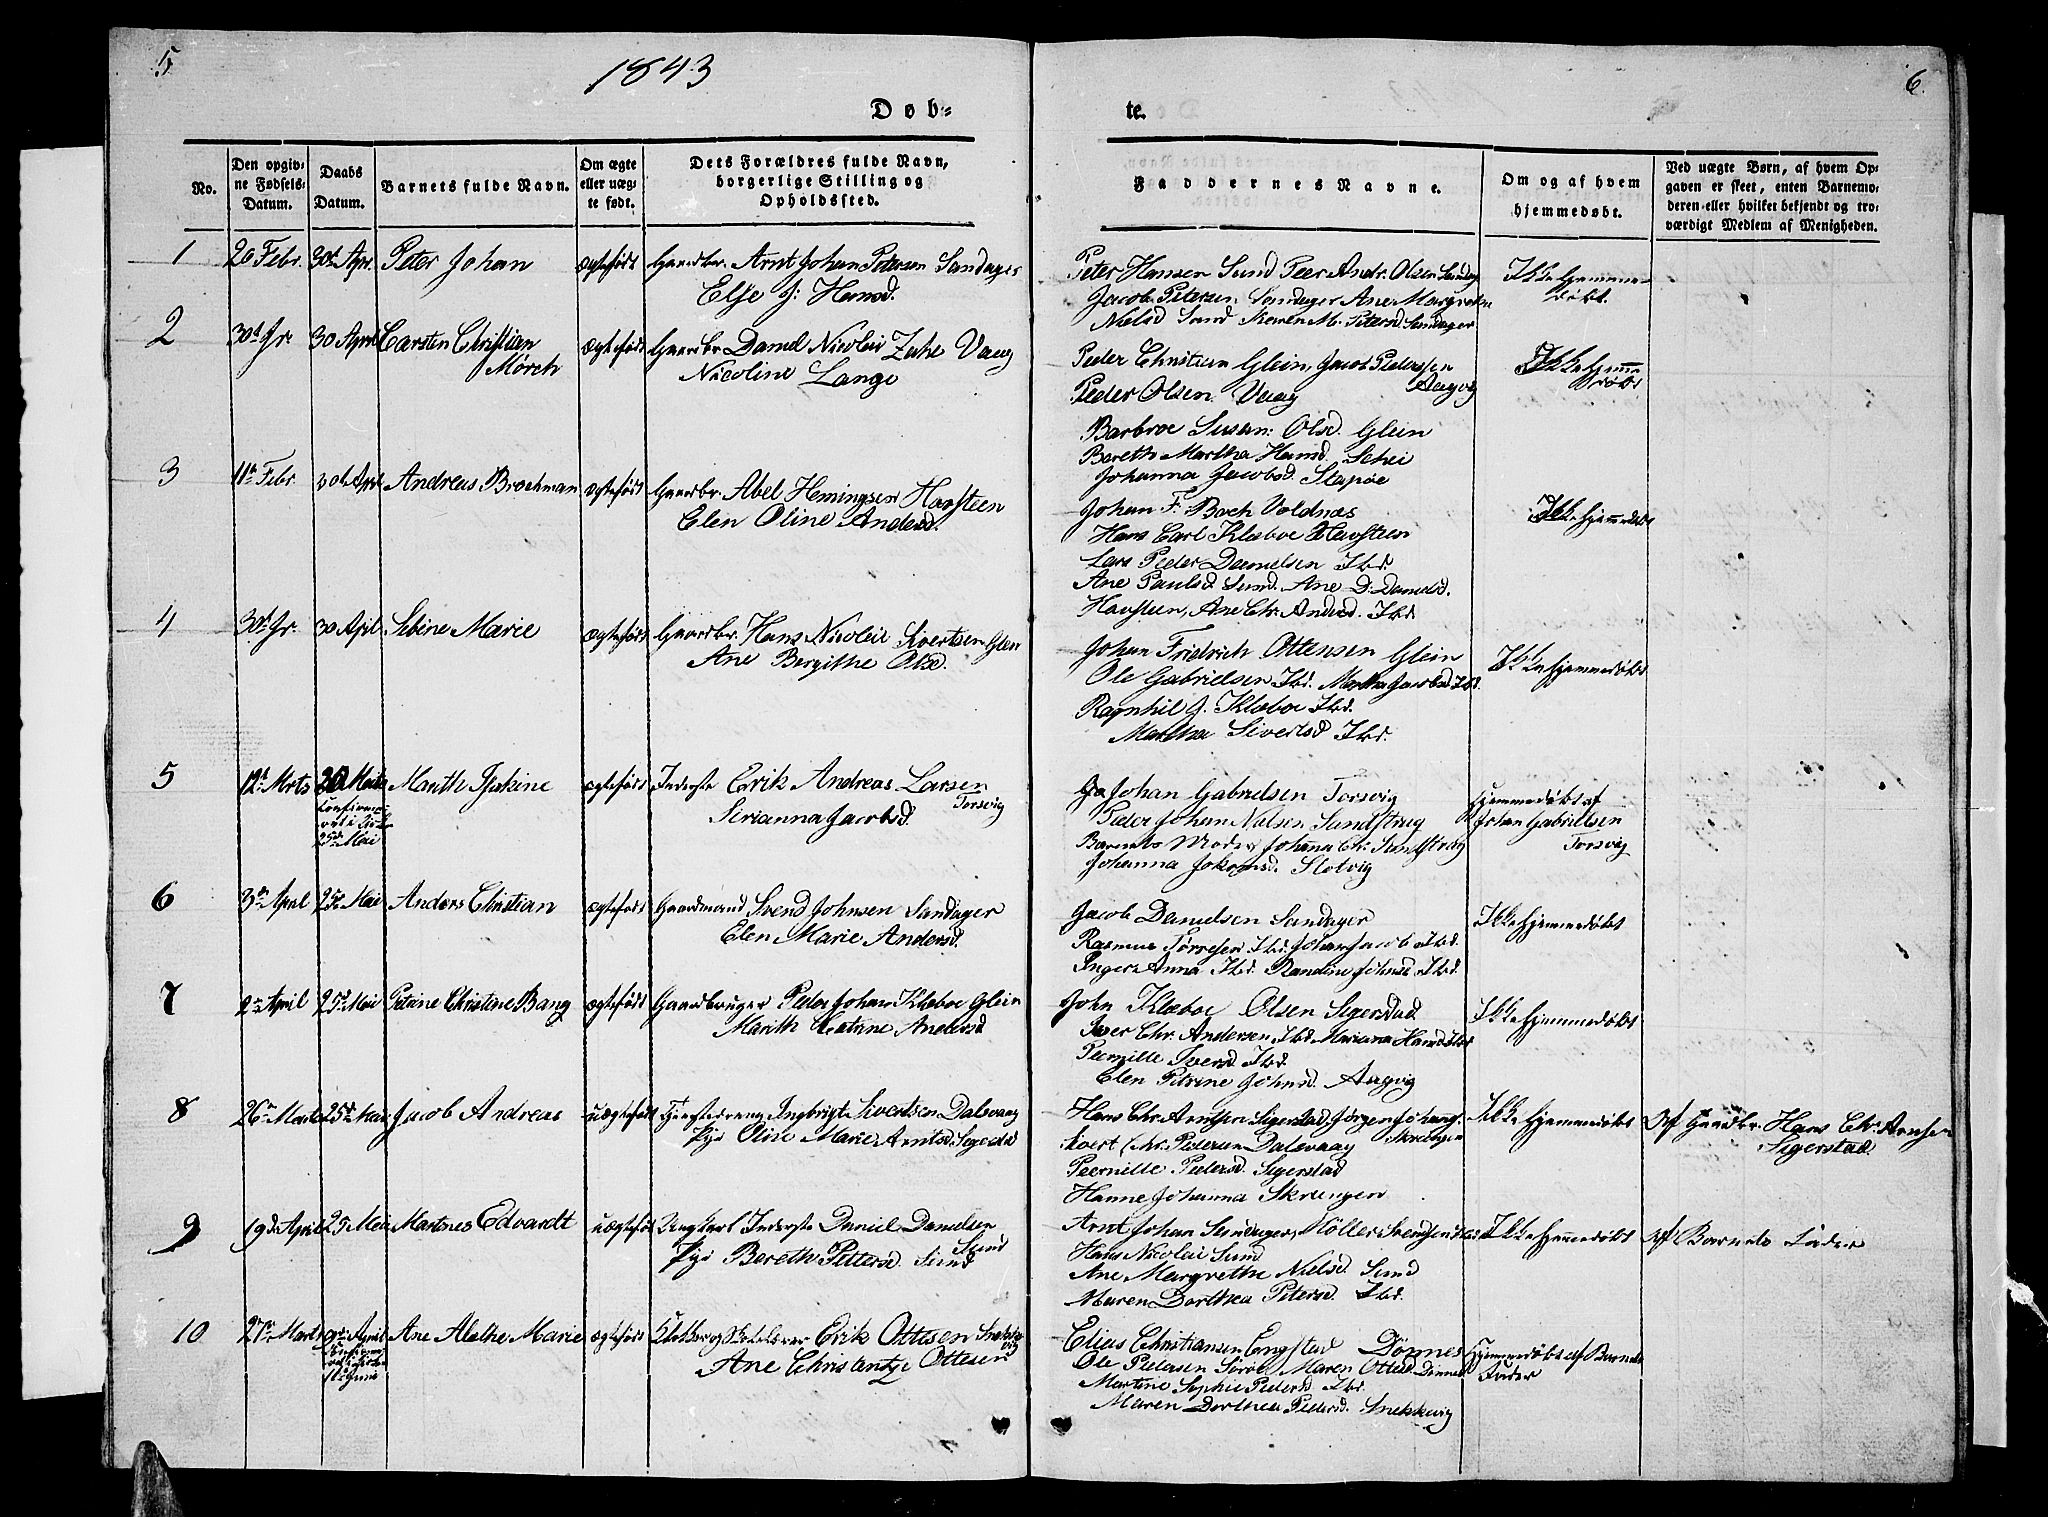 5
1843
6
Døb-
te.
No.
Den opgiv-
ne Fødsels-
Datum.
Daabs
Datum.
Barnets fulde Navn.
Om ægte
eller uæg-
te født.
Dets Forældres fulde Navn,
borgerlige Stilling og
Opholdssted.
Faddernes Navne.
Om og af hvem
hjemmedøbt.
Ved uægte Børn, af hvem Op-
gaven er skeet, enten Barnemo-
deren eller hvilket bekjendt og tro-
værdigt Medlem af Menigheden.
1
26 Febr.
30d Apr.
Peter Johan
ægtefødt
Gaardbr. Arnt Johan Petersen Sandager
Else J: Hansd.
Peter Hansen Sund Peer Andr. Olsen Sandag
Jacob Petersen Sandager Ane Margrethe
Nielsd Sund Karen M. Petersd Sandager
Ikke hjemme-
døbt.
2
30 April
Carsten Christian
Mørch
ægtefødt
Gaardbr. Daniel Nicolai Zahl Vaag
Nicoline Lange
Peder Christian Glein, Jacob Pederssen
Aagvig
Peder Olsen Vaag
Barbroe Susan: Olsd. Glein
Bereth Martha Hansd. Schei
Johanna Jacobsd. Stapøe
Ikke hjemme
døbt
3
11te Febr
30d April
Andreas Brochman
ægtefødt
Gaardbr. Abel Hemingsen Havsteen
Elen Oline Andersd.
Johan F. Bach Voldnæs
Hans Carl Klæboe Havsteen
Lars Peder Danielsen Ibd.
Ane Paulsd Sund. Ane D. Danielsd.
Havsteen, Ane Chr. Andersd. Ibd.
Ikke hjemmedøbt
4
30 April
Sibine Marie
ægtefødt
Gaardbr. Hans Nicolai Sivertsen Glen
Ane Bergithe Olsd.
Johan Fridrich Ottensen Glein
Ole Gabrielsen Ibd. Martha Jacobsd Ibd.
Ragnhil J. Klæboe Ibd.
Martha Sivertsd Ibd.
Ikke hjemmedøbt
5
12te Mrts
25d Mai
ægtefødt
Inderste Erik Andreas Larsen
Torsvig
Serianna Jacobsd.
Johan Gabrielsen Torsvig
Peder Johan Nielsen Sundstrøg
Barnets Moder, Johanna Chr. Sundstrøg
Johanna Slotvig
hjemmedøbt af
Johan Gabrielsen
Torsvig
6
3die April
25d Mai
Anders Christian
ægtefødt
Gaardmand Svend Johnsen Sandager
Elen Marie Andersd.
Jacob Danielsen Sandager
Rasmus Tørresen Ibd. Johan Jacobs. Ibd.
Inger Anna Ibd. Randine Johnsd Ibd.
Ikke hjemmedøbt
7
2n April
25d Mai
Petrine Christine Bang
ægtefødt
Gaardbruger Peder Johan Klæboe Glein
Marith Catrine Andersd
John Klæboe Olsen Sigerstad
Iver Chr. Andersen Ibd. Mariana Hansd Ibd
Pernille Iversd Ibd.
Elen Petrine Johnsd. Aagvig
Ikke hjemmedøbt
8
26n Marts
25d Mai
Jacob Andreas
uægtefødt
Tjenestedreng Ingbrigt Sivertsen Dalsvaag
Pige Oline Marie Arntsd. Segerstad
Hans Chr. Arntsen Sigerstad, Jørgen Johans.
Skrengen
Sivert Chr. Petersen Dalsvaag
Peernille Pedersd. Sigerstad
Hanne Johanna Skrengen
Ikke hjemmedøbt
Af Gaardbr. Hans Chr. Arnsen
Sigerstad.
9
19d April
25 Mai
Martines Edvardt
uægtefødt
Ungkarl Inderste Daniel Danielsen
Sund
Pige Bereth Pettersd. Sund
Arnt Johan Sandager, Møller Svendsen Ibd.
Hans Nicolai Sund
Ane Margrethe Nielsd. Sund
Maren Dorthea Petersd. Ibd.
Ikke hjemmedøbt
Af Barnets Fader
10
27n Marts
9d April
Ane Alethe Marie
ægtefødt
Erik Ottesen Snekke
vig
Ane Christantze Ottesen
Elias Christiansen Engstad Dønnes
Ole Pedersen Sørøe Maren Ottesd. Dønnes
Martine Sophie Pedersd. Ibd.
Maren Dorthea Pedersd. Snekkevig
Hjemmedøbt af Barnets
Fader